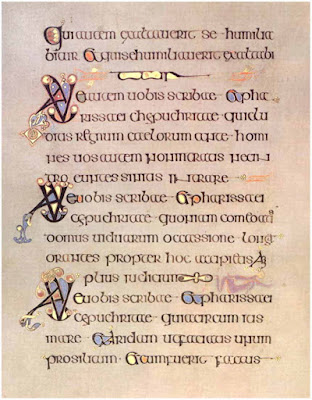 Qui autem exaltauerit se humilia
bitur & qui se humiliauerit exaltabi
Vae autem uobis scribae & pha
rissaei chypuchritae qui clu
ditis regnum caelorum ante homi
nes uos autem non intratis nec in
tro euntes sinitis intrare
Vae uobis scribae & pharissaei
chypuchritae quoniam comeditis
domus uiduarum occassione longa
orantes propter hoc accipietis
plius iudicium
Vae uobis scribae & pharissaei
chypuchritae qui circuitis
mare & aridam ut faciatis unum
prosilitum & cum fuerit factus